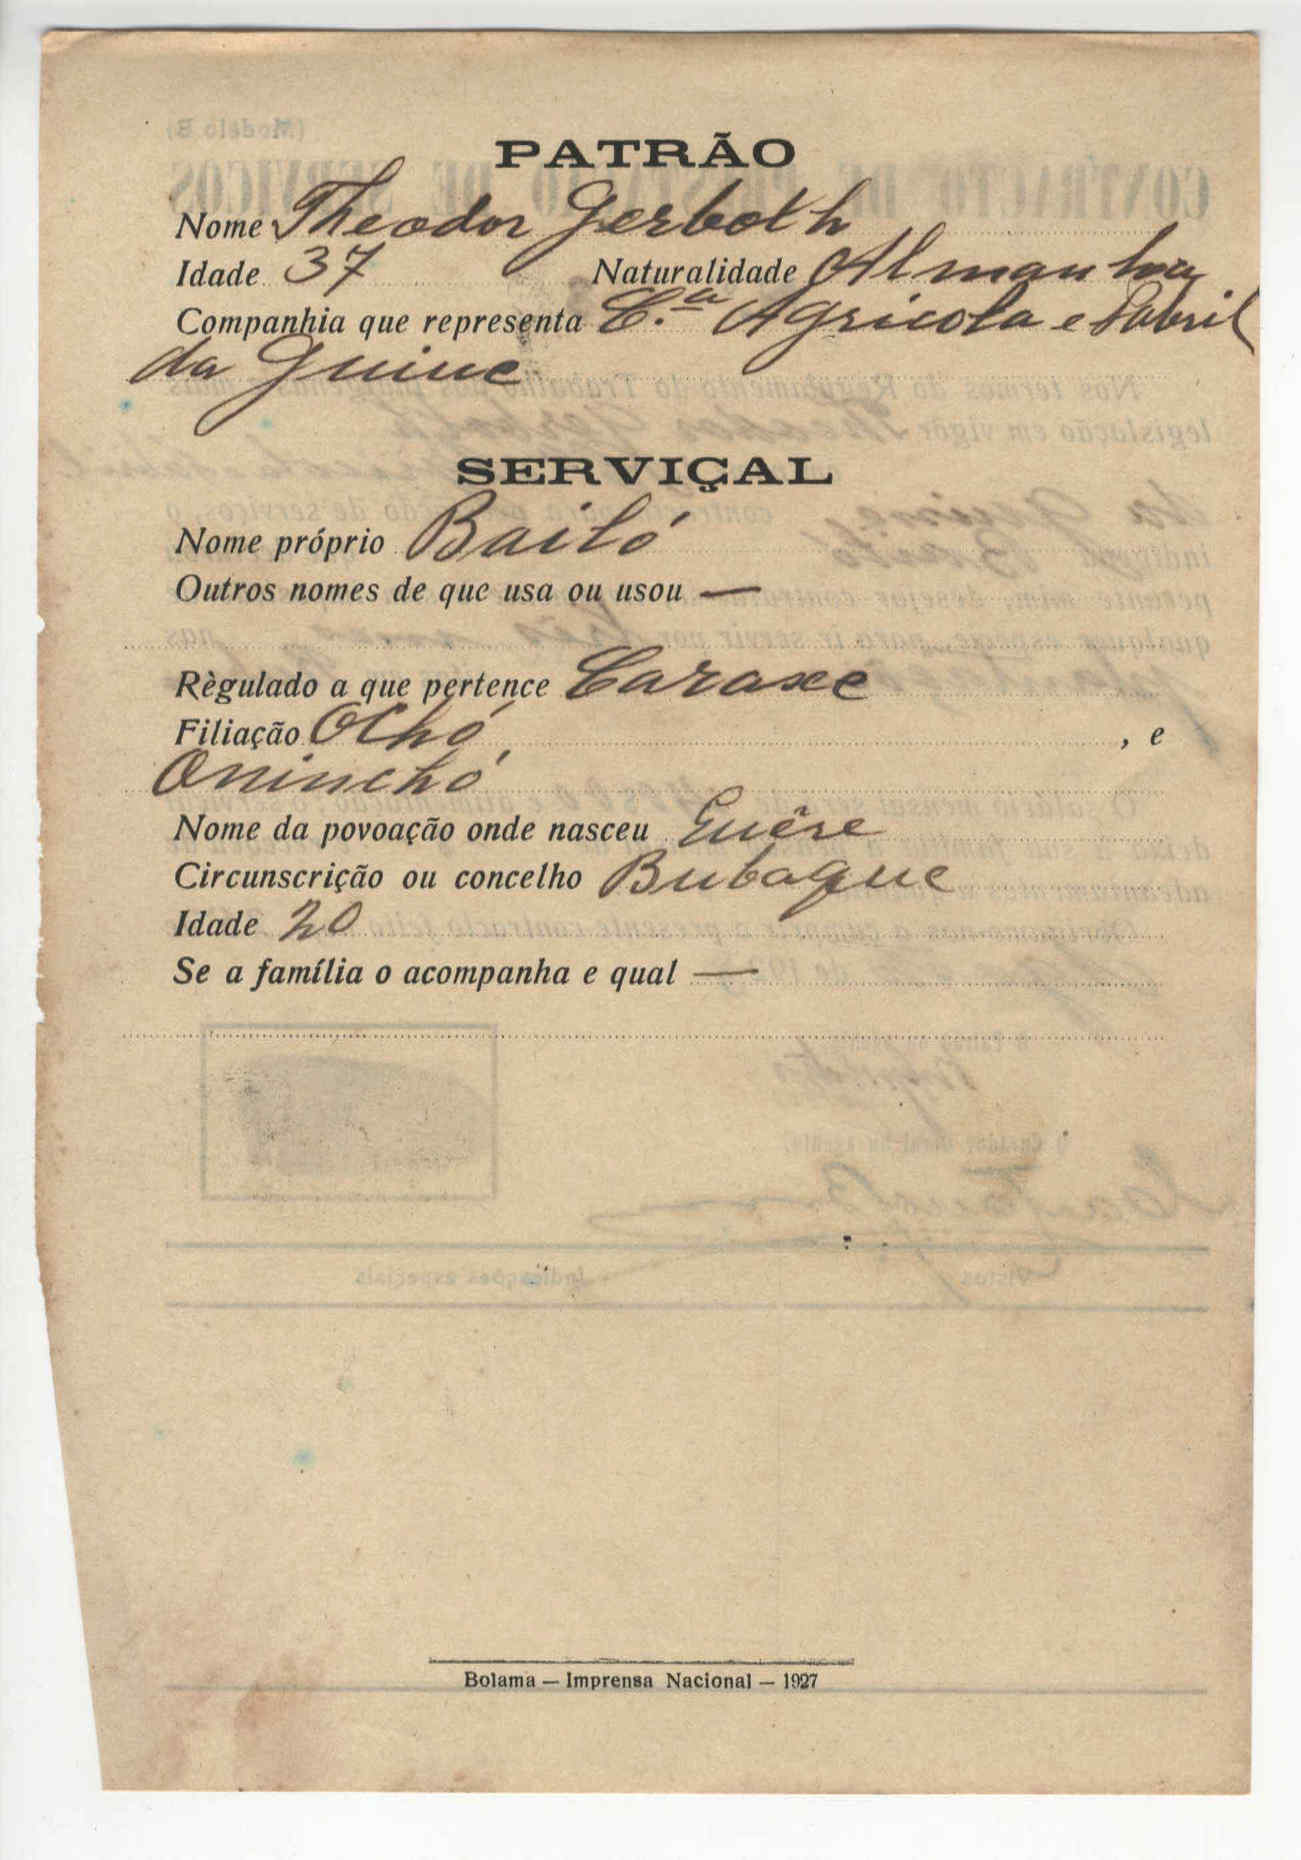 PATRÃO
Nome Theodor Gerboth
Idade 37 Naturalidade Almanha
Companhia que representa C.ª Agricola e Fabril
da Guine
SERVIÇAL
Nome próprio Bailó
Outros nomes de que usa ou usou —
Règulado a que pertence Caraxe
Filiação Ochó, e
Oninchó
Nome da povoação onde nasceu
Circunscrição ou concelho Bubaque
Idade 20
Se a família o acompanha e qual —
Bolama — Imprensa Nacional — 1927